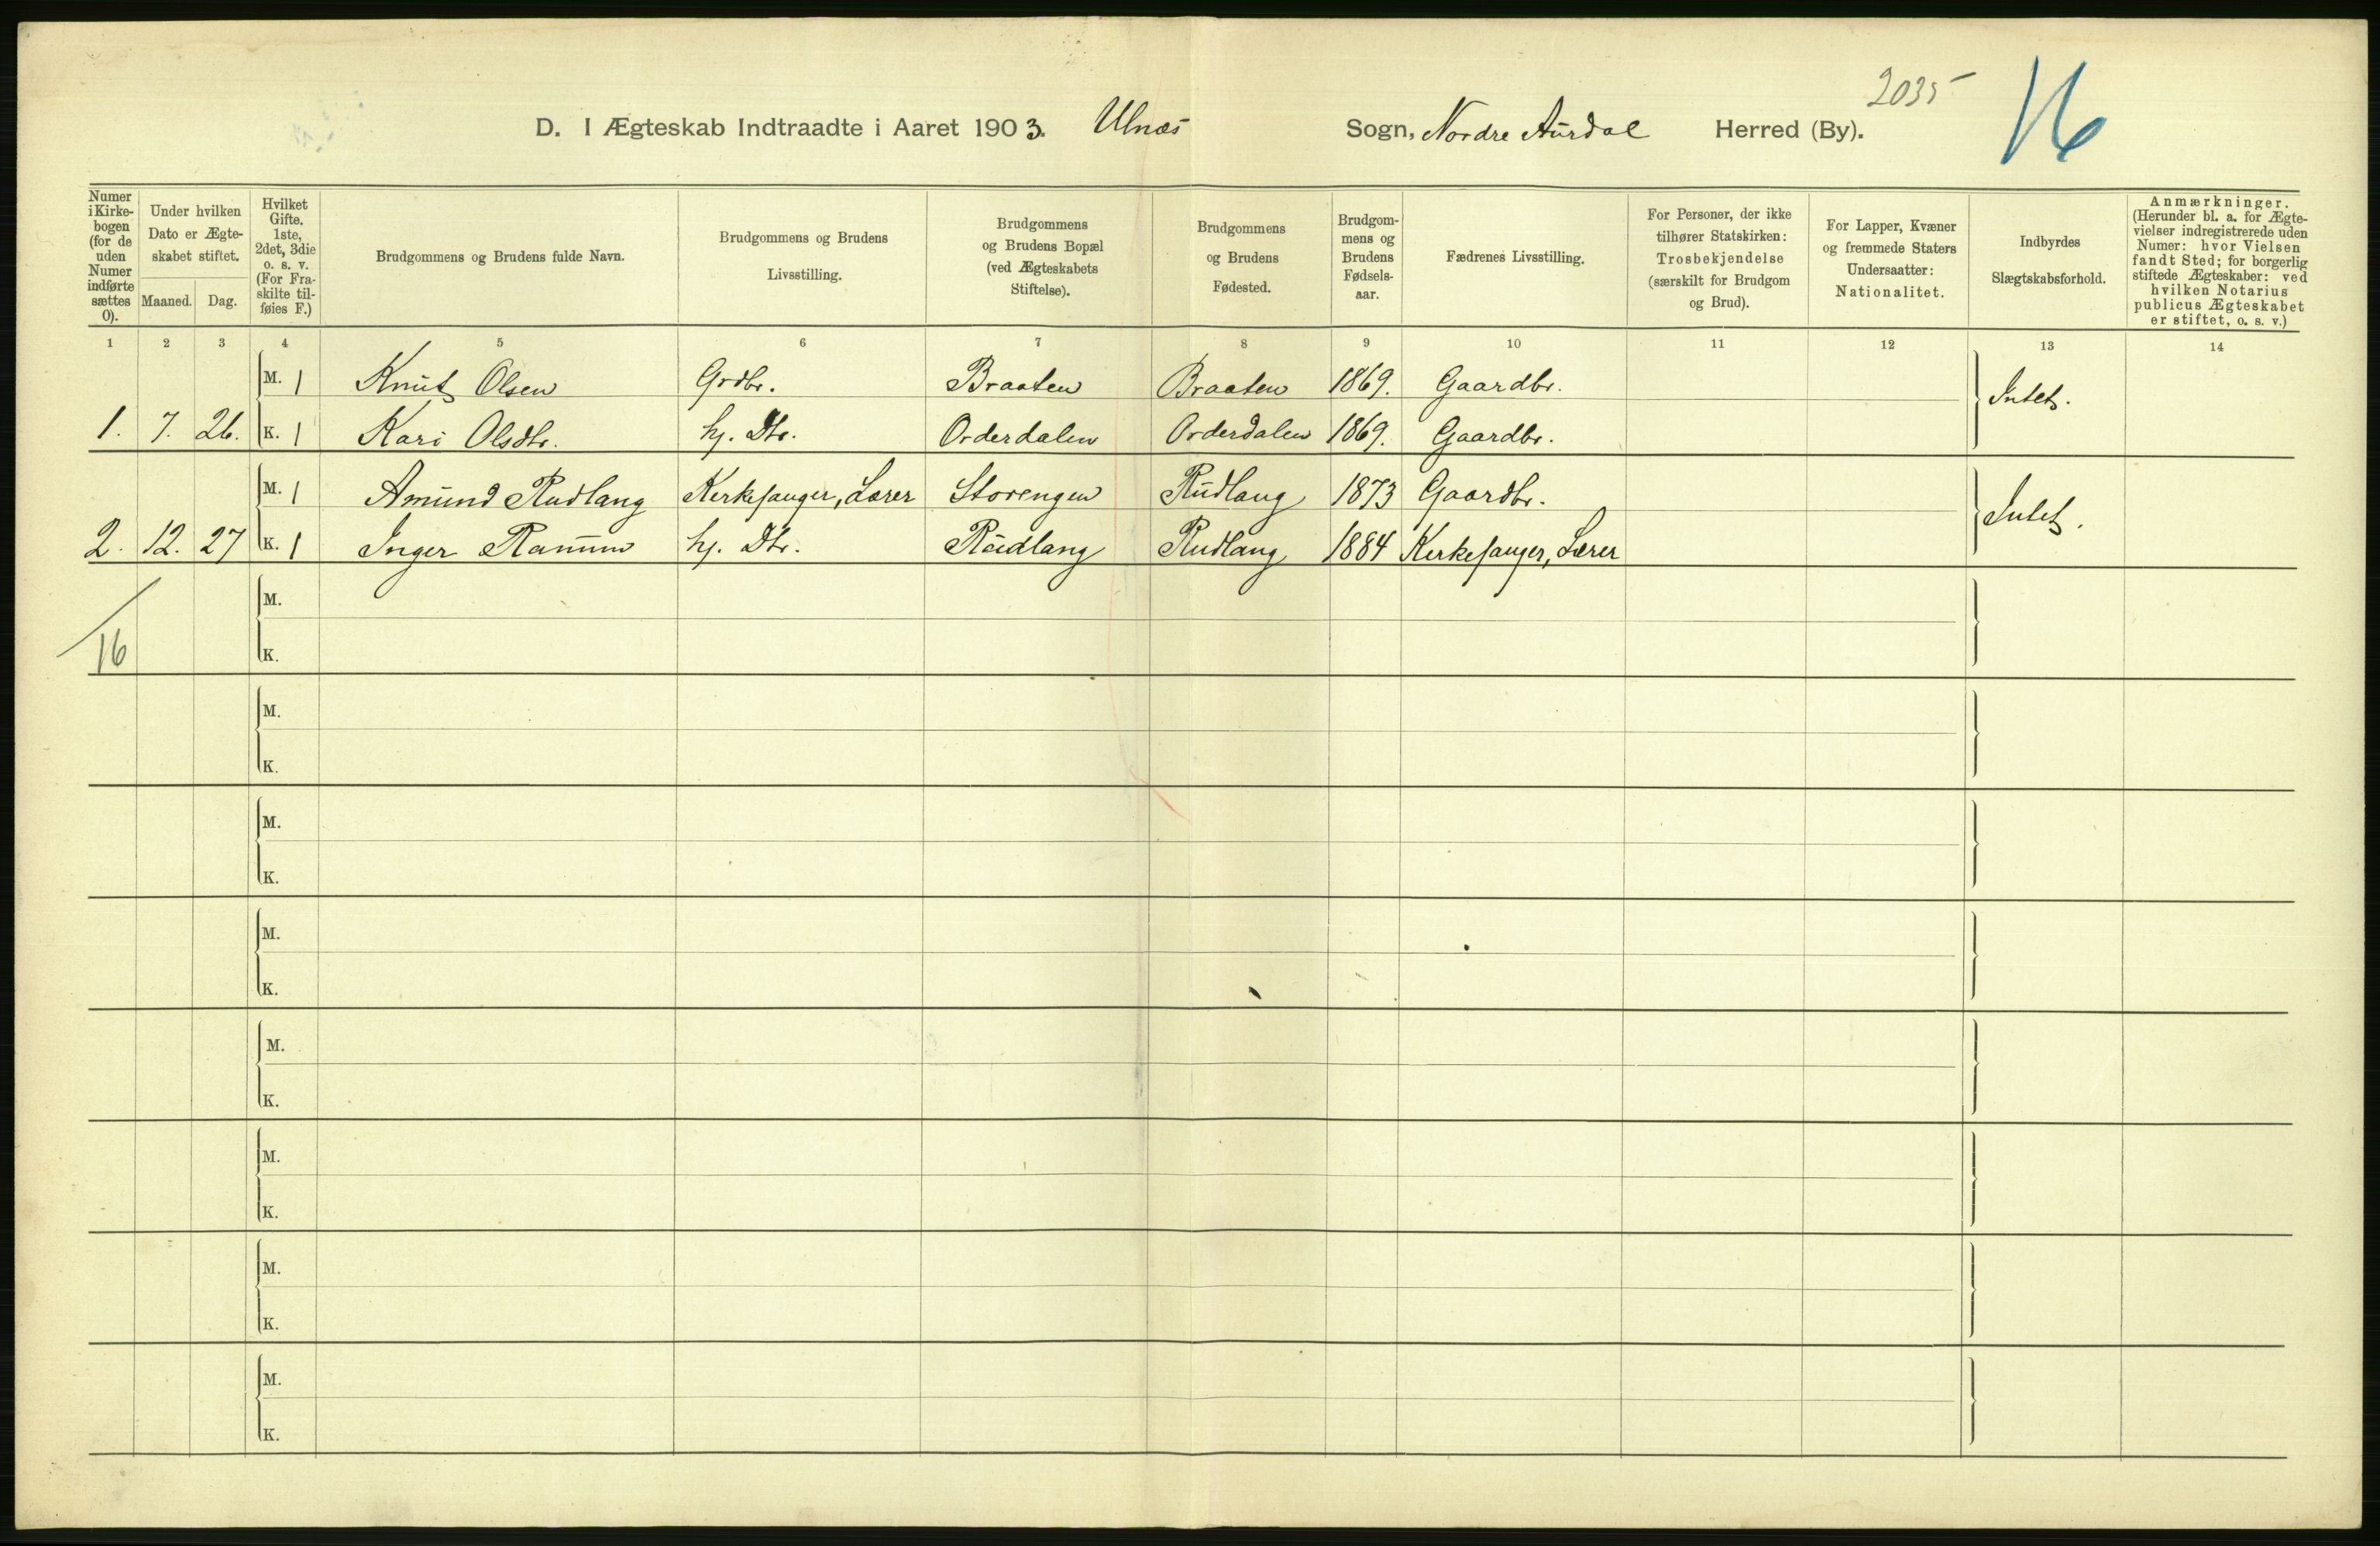 2035 16
D. I Ægteskab Indtraadte i Aaret 1903. Ulnæs Sogn, Nordre Aurdal Herred (By).
Numer i Kirke-bogen (for de uden Numer indførte sættes 0).
Under hvilken Dato er Ægte-skabet stiftet.
Maaned. Dag.
Hvilket Gifte. 1ste, 2det, 3die o. s. v. (For Fra-skilte til-føies F.)
Brudgommens og Brudens fulde Navn.
Brudgommens og Brudens Livsstilling.
Brudgommens og Brudens Bopæl (ved Ægteskabets Stiftelse).
Brudgommens og Brudens Fødested.
Brudgom-mens og Brudens Fødsels-aar.
Fædrenes Livsstilling.
For Personer, der ikke tilhører Statskirken: Trosbekjendelse (særskilt for Brudgom og Brud).
For Lapper, Kvæner og fremmede Staters Undersaatter: Nationalitet.
Indbyrdes Slægtskabsforhold.
Anmærkninger. (Herunder bl. a. for Ægte-vielser indregistrerede uden Numer: hvor Vielsen fandt Sted; for borgerlig stiftede Ægteskaber: ved hvilken Notarius publicus Ægteskabet er stiftet, o. s. v.)
1 2 3 4 5 6 7 8 9 10 11 12 13 14
M. 1 Knut Olsen Grdbr. Braaten Braaten 1869. Gaardbr. Intet.
1. 7. 26. K. 1 Kari Olsdtr. hj. Dtr. Orderdalen Orderdalen 1869. Gaardbr.
M. 1 Amund Rudlang Kerkesanger, Lærer Storengen Rudlang 1873 Gaardbr. Intet.
2. 12. 27 K. 1 Inger Ranum hj. Dtr. Rudlang Rudlang 1884 Kerkesanger, Lærer
M.
16 K.
M.
K.
M.
K.
M.
K.
M.
K.
M.
K.
M.
K.
M.
K.